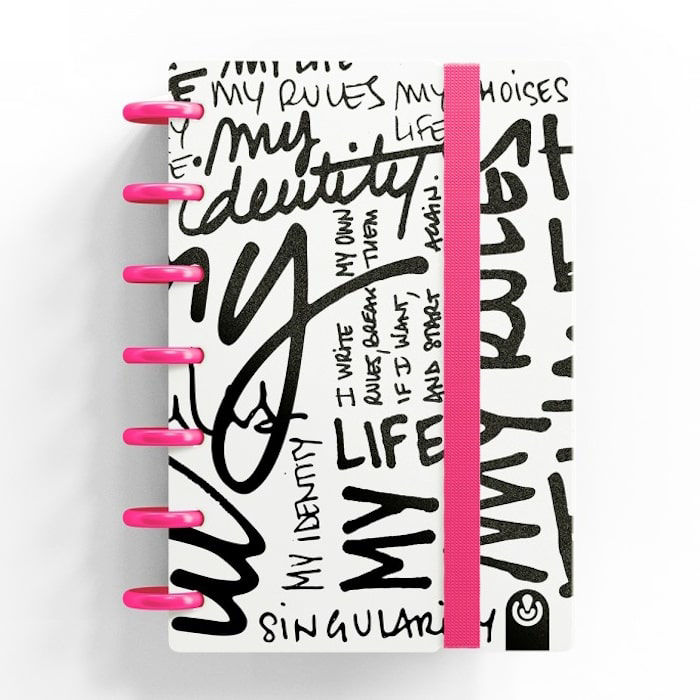 MY LIFE
MY RULES
MY
LIFE
HOISES
my
identity
my
I WRITE MY OWN
RULES, BREAK THEM
IF I WANT,
AND START AGAIN.
LIFE
MY
MY IDENTITY
MY RULES
SINGULARITY